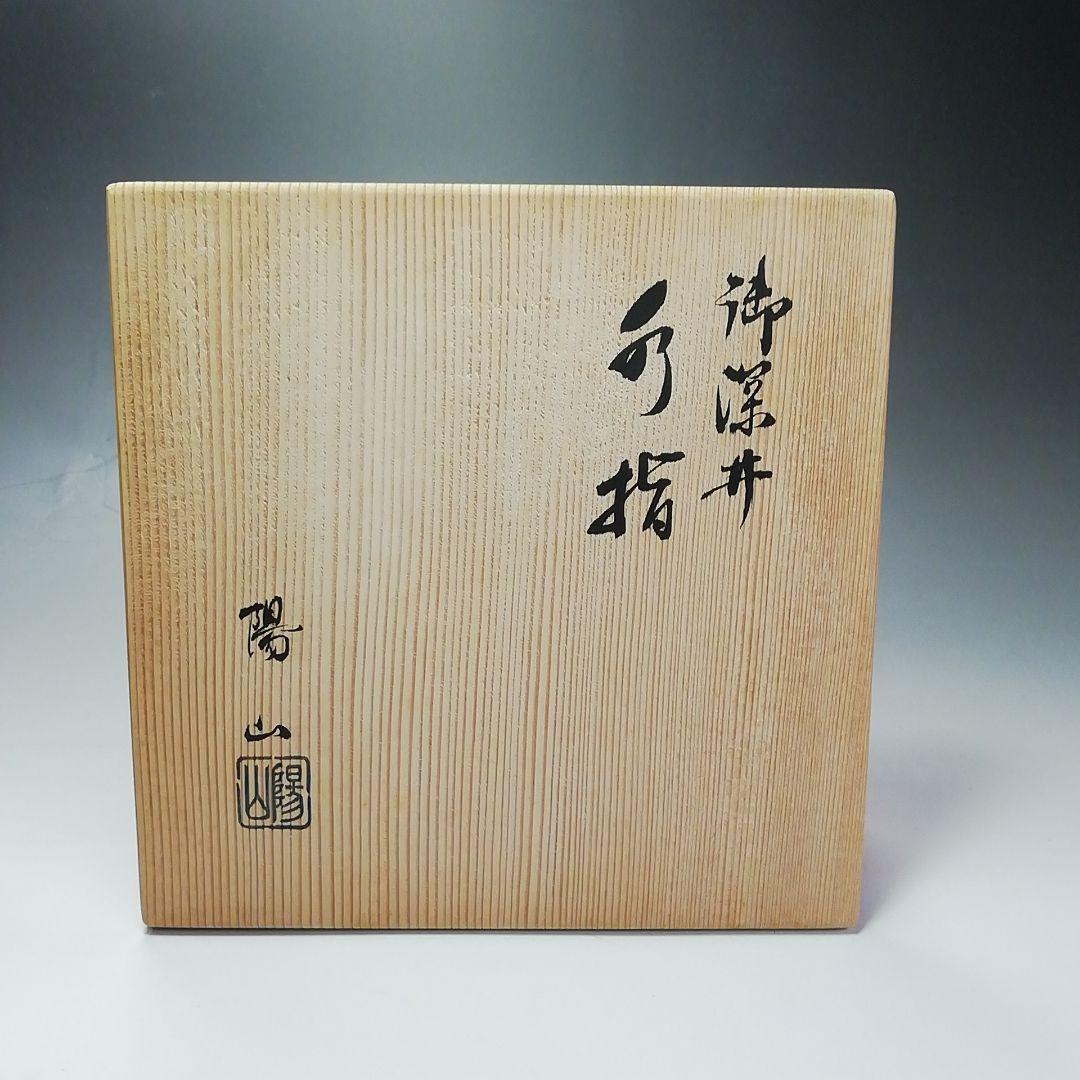 御深井
水指
陽山
陽山